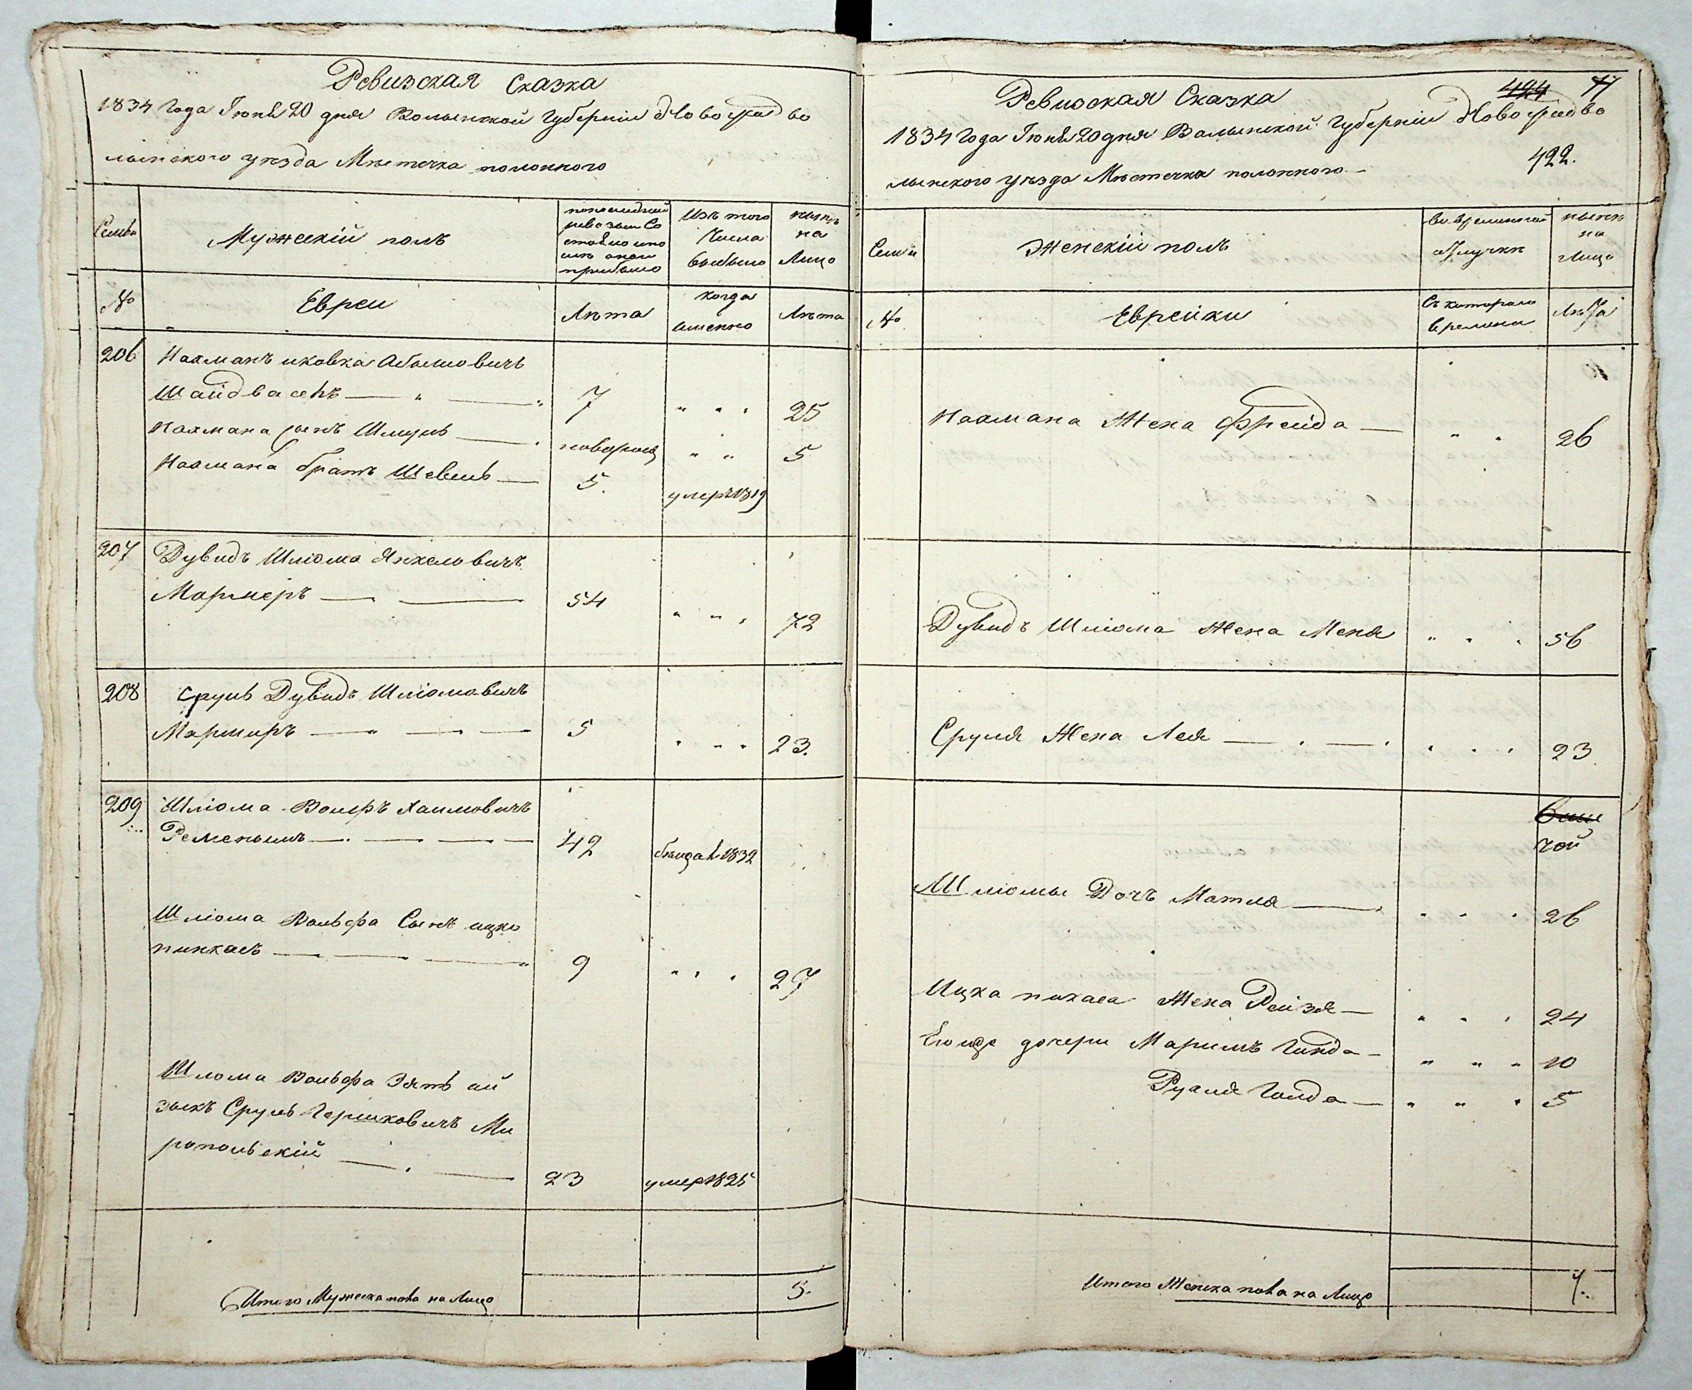 Ревизская Сказка
1834 года Іюня 20 дня Волынской губерніи Новоградво
лынского уезда Местечка полонного
Семьи
Мужескій полъ
по последней
ревизіи Со
стояло и по
слѣ оной
прибыло
Изъ того
Числа
выбыло
нынѣ
на
Лицо
№
Евреи
Лѣта
когда
именно
Лѣта
206
Нахманъ ицковка Абрамовичъ
Шайдвасеръ
7
25
Нахмана сынъ Шмуль
новорожд
5
Нахмана братъ Шевель
5.
умеръ 1819
207
Дувидъ Шлiома Янкеловичъ
Мармеръ
54
72
208
Сруль Дувидъ Шліомовичъ
Мармеръ
5
23.
209
Шліома Вольфъ Хаимовичъ
Ременникъ
42
1832
Шліома Вольфа Сынъ ицко
пинкасъ
9
27
Шлома Вольфа Зять ай
зыкъ Сруль Гершковичъ Ми
ропольскій
23
умеръ 1825
Итого Мужеска пола на Лицо
5.
Ревизская Сказка
494
77
1834 года Іюня 20 дня Волынской губерніи Новоградво
лынского уезда Местечка полонного
422.
Семьи
Женскій полъ
Во временной
отлучкѣ
нынѣ
на
Лицо
№
Еврейки
Съ котораго
времени
Лѣта
Нахмана Жена Фрейда
26
Дувидъ Шліома Жена Меня
56
Сруля Жена Лея
23
Шліомы Дочъ Матля
26
Ицка пинхаса Жена Рейзя
24
Его же дочери Маримъ Гинда
10
Рухля Голда
5
Итого Женска пола на Лицо
7.